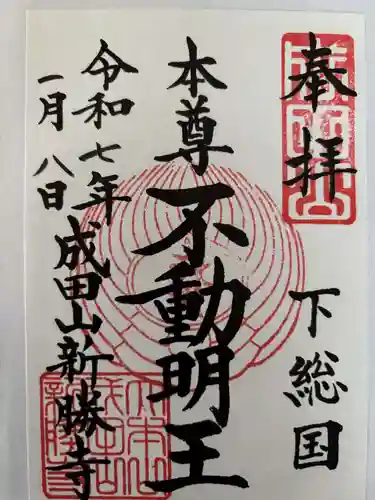 奉拝
下総国
本尊
不動明王
令和七年
一月八日
成田山新勝寺